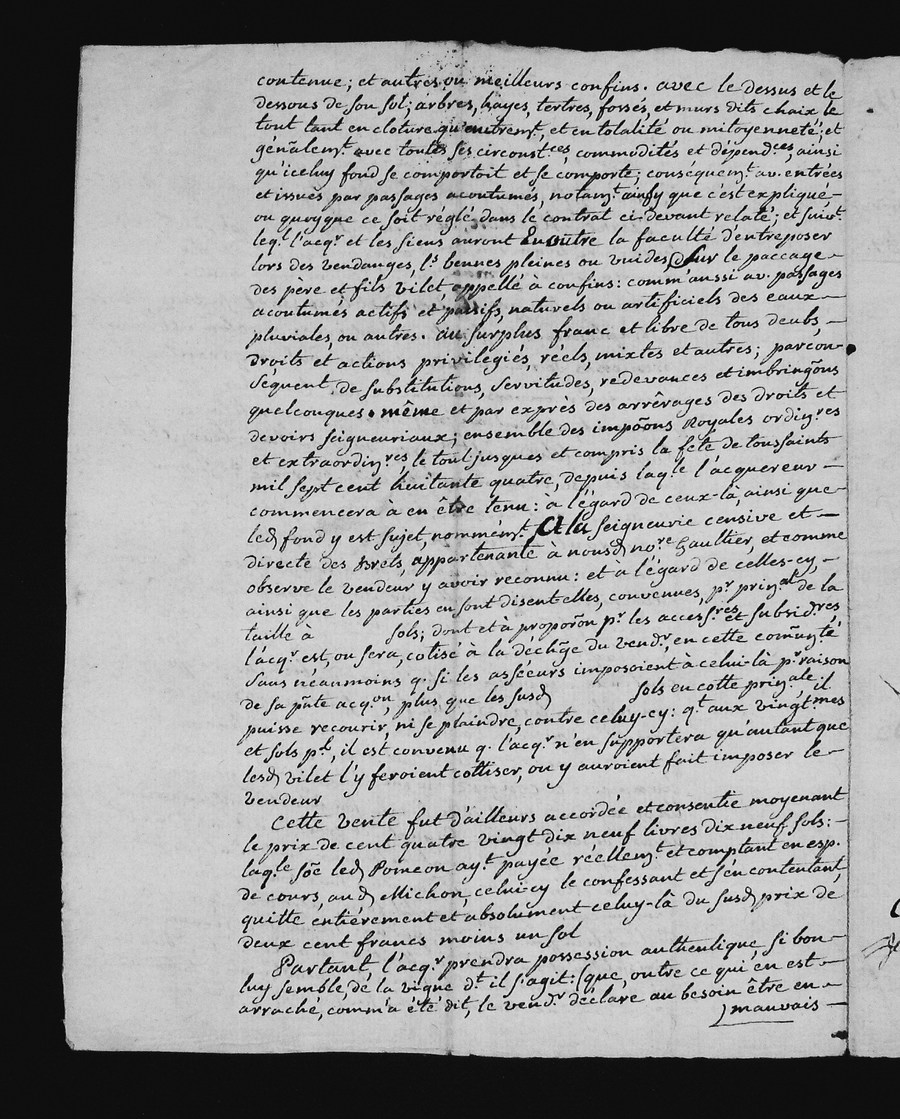 contenue; et autres ou meilleurs confins. avec le dessus et le
dessous de son sol; arbres, hayes, tertres, fossés, et murs dits chaix le
tout tant en cloture qu'autremt, et en totalité ou mitoyenneté; et
génalemt avec toutes ses circonstces, commodités et dépendces, ainsi
qu'iceluy fond se comportoit et se comporte; conséquemt av. entrées
et issues par passages acoutumés, notamt ainsy que c'est expliqué
ou quoyque ce soit réglé dans le contrat ci-devant relaté; et suivt
leql l'acqr et les siens auront En outre la faculté d'entreposer
lors des vendanges, ls bennes pleines ou vuides sur le paccage
des père et fils vilet, appellé à confins: comm'aussi av. passages
acoutumés actifs et passifs, naturels ou artificiels des eaux
pluviales, ou autres. au surplus franc et libre de tous deubs,
droits et actions privilegiés, réels, mixtes et autres; par con-
séquent de substitutions, servitudes, redevances et imbringõns
quelconques. même et par exprès des arrêrages des droits et
devoirs seigneuriaux; ensemble des impõons Royales ordinres
et extraordinres le tout jusques et compris la fete de toussaints
mil sept cent huitante quatre, depuis laqle l'acquereur
commencera à en être tenu: à l'égard de ceux-là, ainsi que
led fond y est sujet, nommémt A la seigneurie censive et
directe des Brels, appartenante à nousd nore Gaultier, et comme
observe le vendeur y avoir reconnu: et à l'égard de celles-cy,
ainsi que les parties en sont disent-elles, convenues, pr prinal de la
taille à sols; dont et à proporõn pr les accessres et subsidres
l'acqr est, ou sera, cotisé à la déchge du vendr, en cette comũnté
sans néanmoins q. si les asséeurs imposoient à celui-là pr raison
de sa pñte acqon, plus que les susd sols en cotte prinale. il
puisse recourir, ni se plaindre, contre celuy-cy: qt aux vingtmes
et sols pl, il est convenu q. l'acqr n'en supportera qu'autant que
lesd vilet l'y feroient cottiser, ou y auroient fait imposer le
vendeur
Cette vente fut d'ailleurs accordée et consentie moyenant
le prix de cent quatre vingt dix neuf livres dix neuf sols:
laqle sõe led Pomeon ayt payée réellemt et comptant en esp.
de cours, aud Michon, celuicy le confessant et s'en contentant,
quitte entiérement et absolument celuy-là du susd prix de
deux cent francs moins un sol
Partant l'acqr prendra possession authentique si bon
luy semble, de la vigne dt il s'agit: (que, outre ce qui en est
arraché, comm'a été dit, le vendr déclare au besoin être en
mauvais